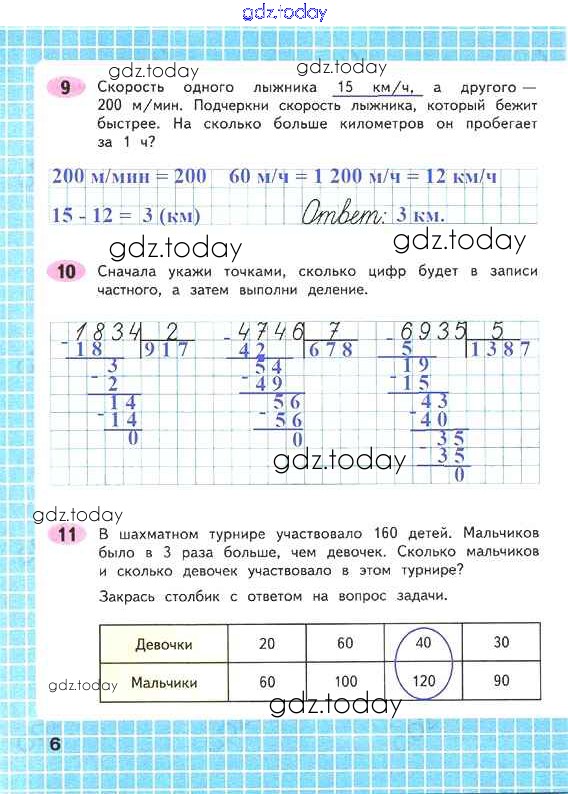 gdz.today
gdz.today gdz.today
9 Скорость одного лыжника 15 км/ч, а другого —
200 м/мин. Подчеркни скорость лыжника, который бежит
быстрее. На сколько больше километров он пробегает
за 1 ч?
200 м/мин = 200 60 м/ч = 1 200 м/ч = 12 км/ч
15 - 12 = 3 (км) Ответ: 3 км.
gdz.today gdz.today
10 Сначала укажи точками, сколько цифр будет в записи
частного, а затем выполни деление.
1834 2 4746 7 6935 5
- 18 917 - 42 678 - 5 1387
3 54 19
- 2 - 49 - 15
14 56 43
- 14 - 56 - 40
0 0 35
- 35
0
gdz.today
gdz.today
11 В шахматном турнире участвовало 160 детей. Мальчиков
было в 3 раза больше, чем девочек. Сколько мальчиков
и сколько девочек участвовало в этом турнире?
Закрась столбик с ответом на вопрос задачи.
Девочки 20 60 40 30
Мальчики 60 100 120 90
gdz.today
gdz.today
6